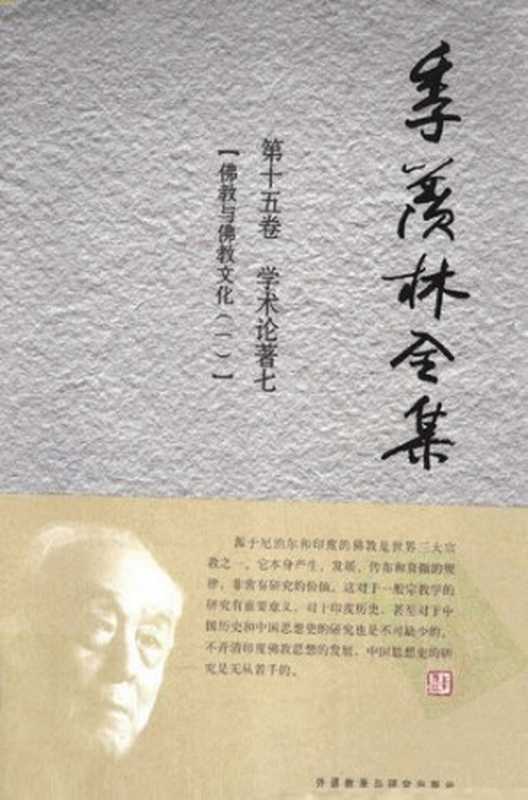 季羡林全集
第十五卷 学术论著七
【佛教与佛教文化（一）】
源于尼泊尔和印度的佛教是世界三大宗
教之一，它本身产生、发展、传布和衰微的规
律，非常有研究的价值。这对于一般宗教学的
研究有重要意义，对于印度历史、甚至对于中
国历史和中国思想史的研究也是不可缺少的。
不弄清印度佛教思想的发展，中国思想史的研
究是无从着手的。
外语教学与研究出版社